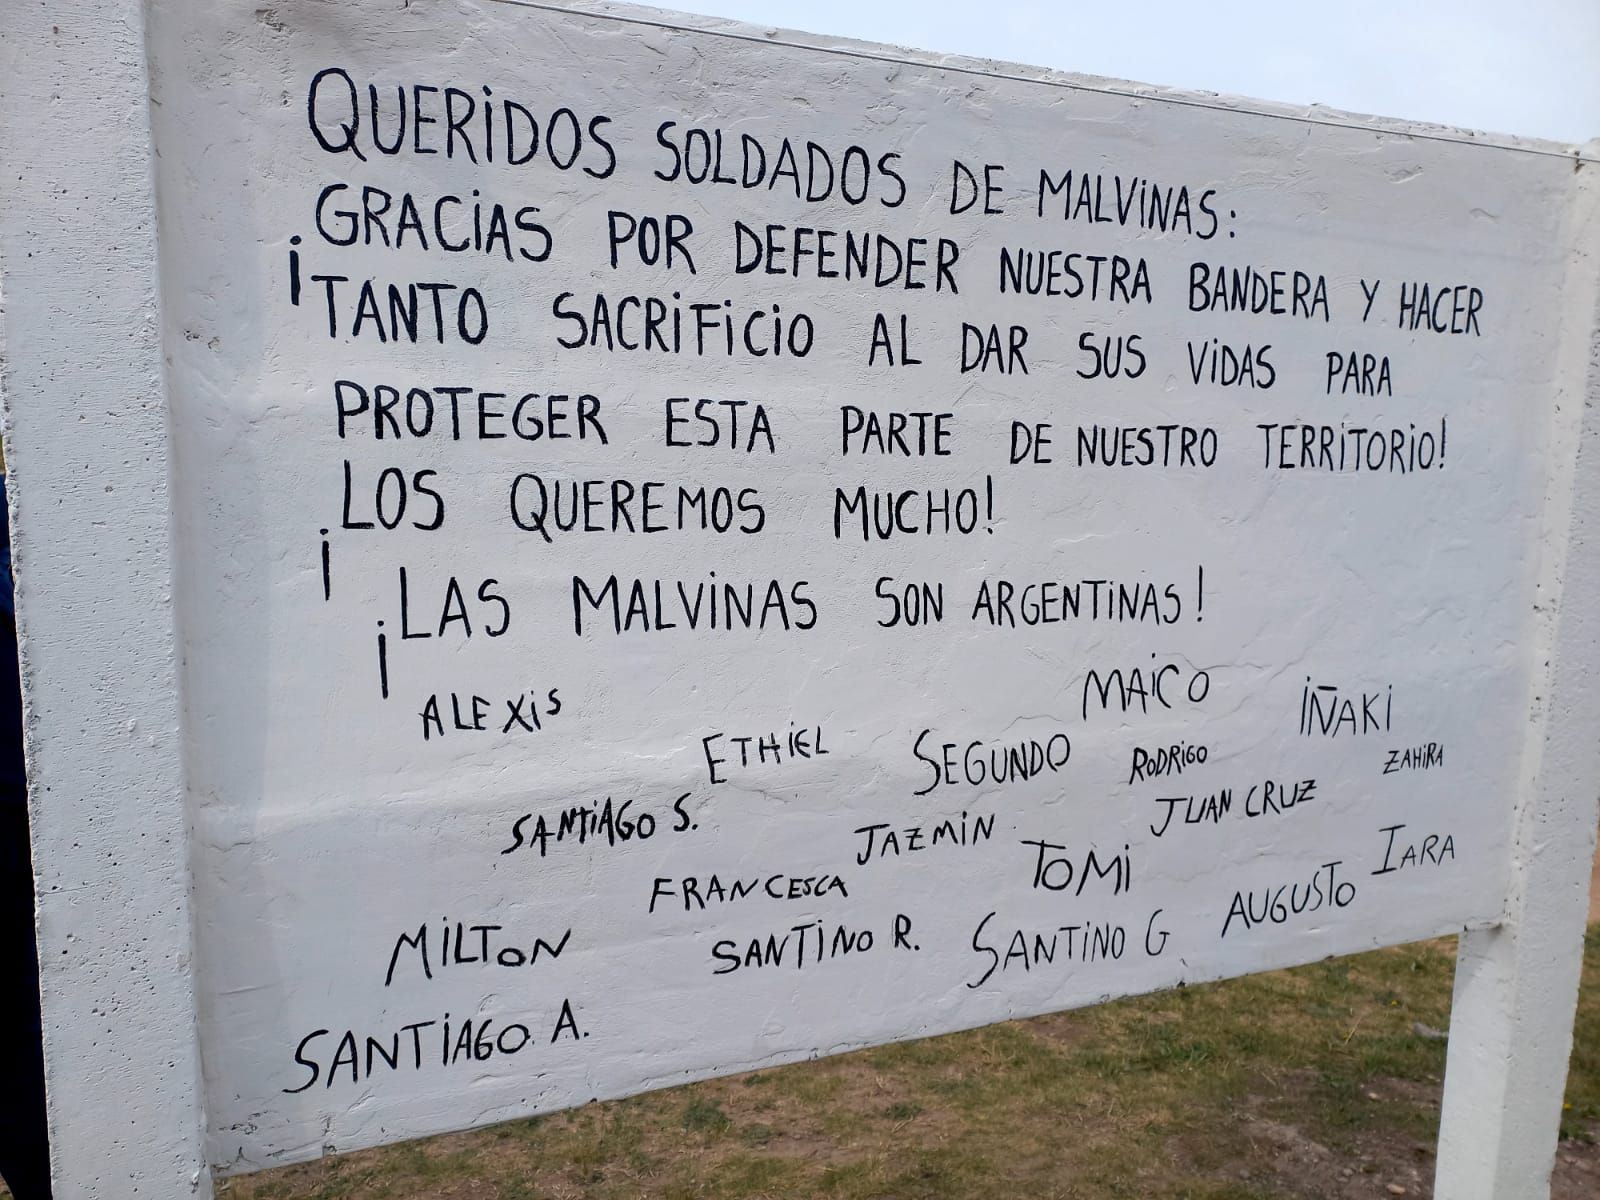 QUERIDOS SOLDADOS DE MALVINAS:
¡GRACIAS POR DEFENDER NUESTRA BANDERA Y HACER
TANTO SACRIFICIO AL DAR SUS VIDAS PARA
PROTEGER ESTA PARTE DE NUESTRO TERRITORIO!
¡LOS QUEREMOS MUCHO!
¡LAS MALVINAS SON ARGENTINAS!
ALEXIS
MAICO
IÑAKI
ETHIEL
SEGUNDO
RODRIGO
ZAHIRA
SANTIAGO S.
JAZMIN
JUAN CRUZ
FRANCESCA
TOMI
IARA
MILTON
SANTINO R.
SANTINO G
AUGUSTO
SANTIAGO A.